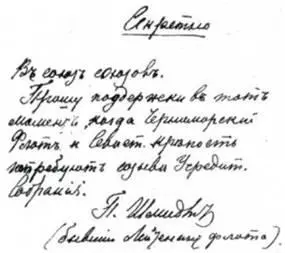 Секретно
Въ союзъ союзовъ.
Прошу поддержки въ тотъ
моментъ, когда Черноморскій
Флотъ и Севаст. крѣпость
потребуютъ созыва Учредит.
собранія.
П. Шмидтъ
(бывшій Лейтенантъ флота).